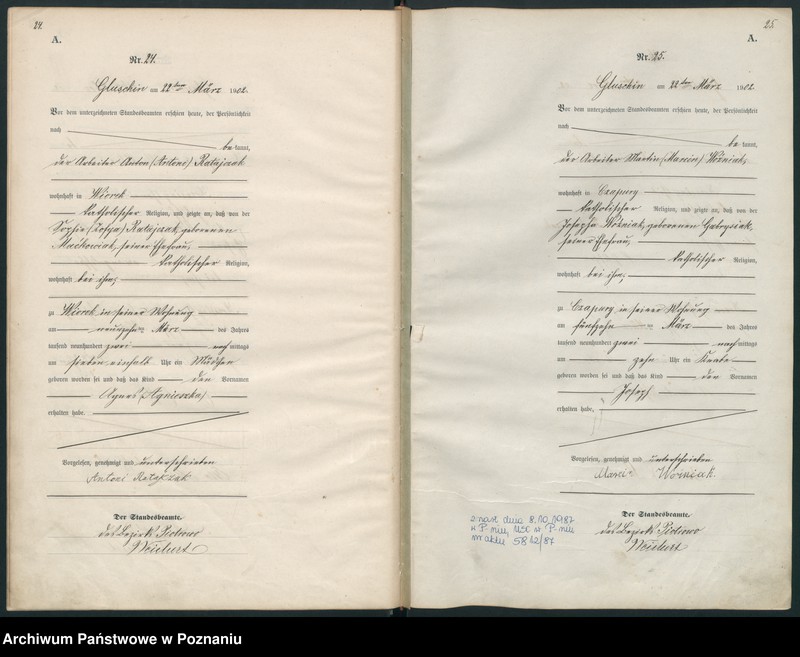 24.
A.
Nr. 24.
Gluschin am 22ten März 1902.
Vor dem unterzeichneten Standesbeamten erschien heute, der Persönlichkeit
nach
bekannt,
der Arbeiter Anton (Antoni) Ratajczak
wohnhaft in Wiorek
katholischer Religion, und zeigte an, daß von der
Sophie (Zofya) Ratajczak, geborenen
Maćkowiak, seiner Ehefrau,
katholischer Religion,
wohnhaft bei ihm,
zu Wiorek in seiner Wohnung
am neunzehnten März des Jahres
tausend neunhundert zwei nachmittags
um sieben einhalb Uhr ein Mädchen
geboren worden sei und daß das Kind den Vornamen
Agnes (Agnieszka)
erhalten habe.
Vorgelesen, genehmigt und unterschrieben
Antoni Ratajczak
Der Standesbeamte.
des Bezirks Piotrowo
Weichert
25
A.
Nr. 25.
Gluschin am 22ten März 1902
Vor dem unterzeichneten Standesbeamten erschien heute, der Persönlichkeit
nach
bekannt,
der Arbeiter Martin (Marcin) Woźniak,
wohnhaft in Czapury
katholischer Religion, und zeigte an, daß von der
Josepha Woźniak, geborenen Gabrysiak,
seiner Ehefrau,
katholischer Religion,
wohnhaft bei ihm,
zu Czapury in seiner Wohnung
am fünfzehnten März des Jahres
tausend neunhundert zwei nachmittags
um zehn Uhr ein Knabe
geboren worden sei und daß das Kind den Vornamen
Joseph
erhalten habe,
Vorgelesen, genehmigt und unterschrieben
Marcin Woźniak.
Der Standesbeamte.
des Bezirks Piotrowo
Weichert
dnia 8.10.1987
w P-niu, USC w P-niu
nr aktu 5812/87
Archiwum Państwowe w Poznaniu